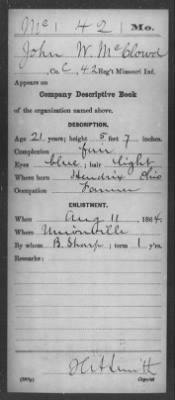 Mc | 42 | Mo.
John W. McClowd
, Co. C, 42 Reg't Missouri Inf.
Appears on
Company Descriptive Book
of the organization named above.
DESCRIPTION.
Age 21 years; height 5 feet 7 inches.
Complexion fair
Eyes blue; hair light
Where born Hendrix Ohio
Occupation Farmer
ENLISTMENT.
When Aug 11, 1864.
Where Unionville
By whom B. Sharp; term 1 y'rs.
Remarks:
Copyist